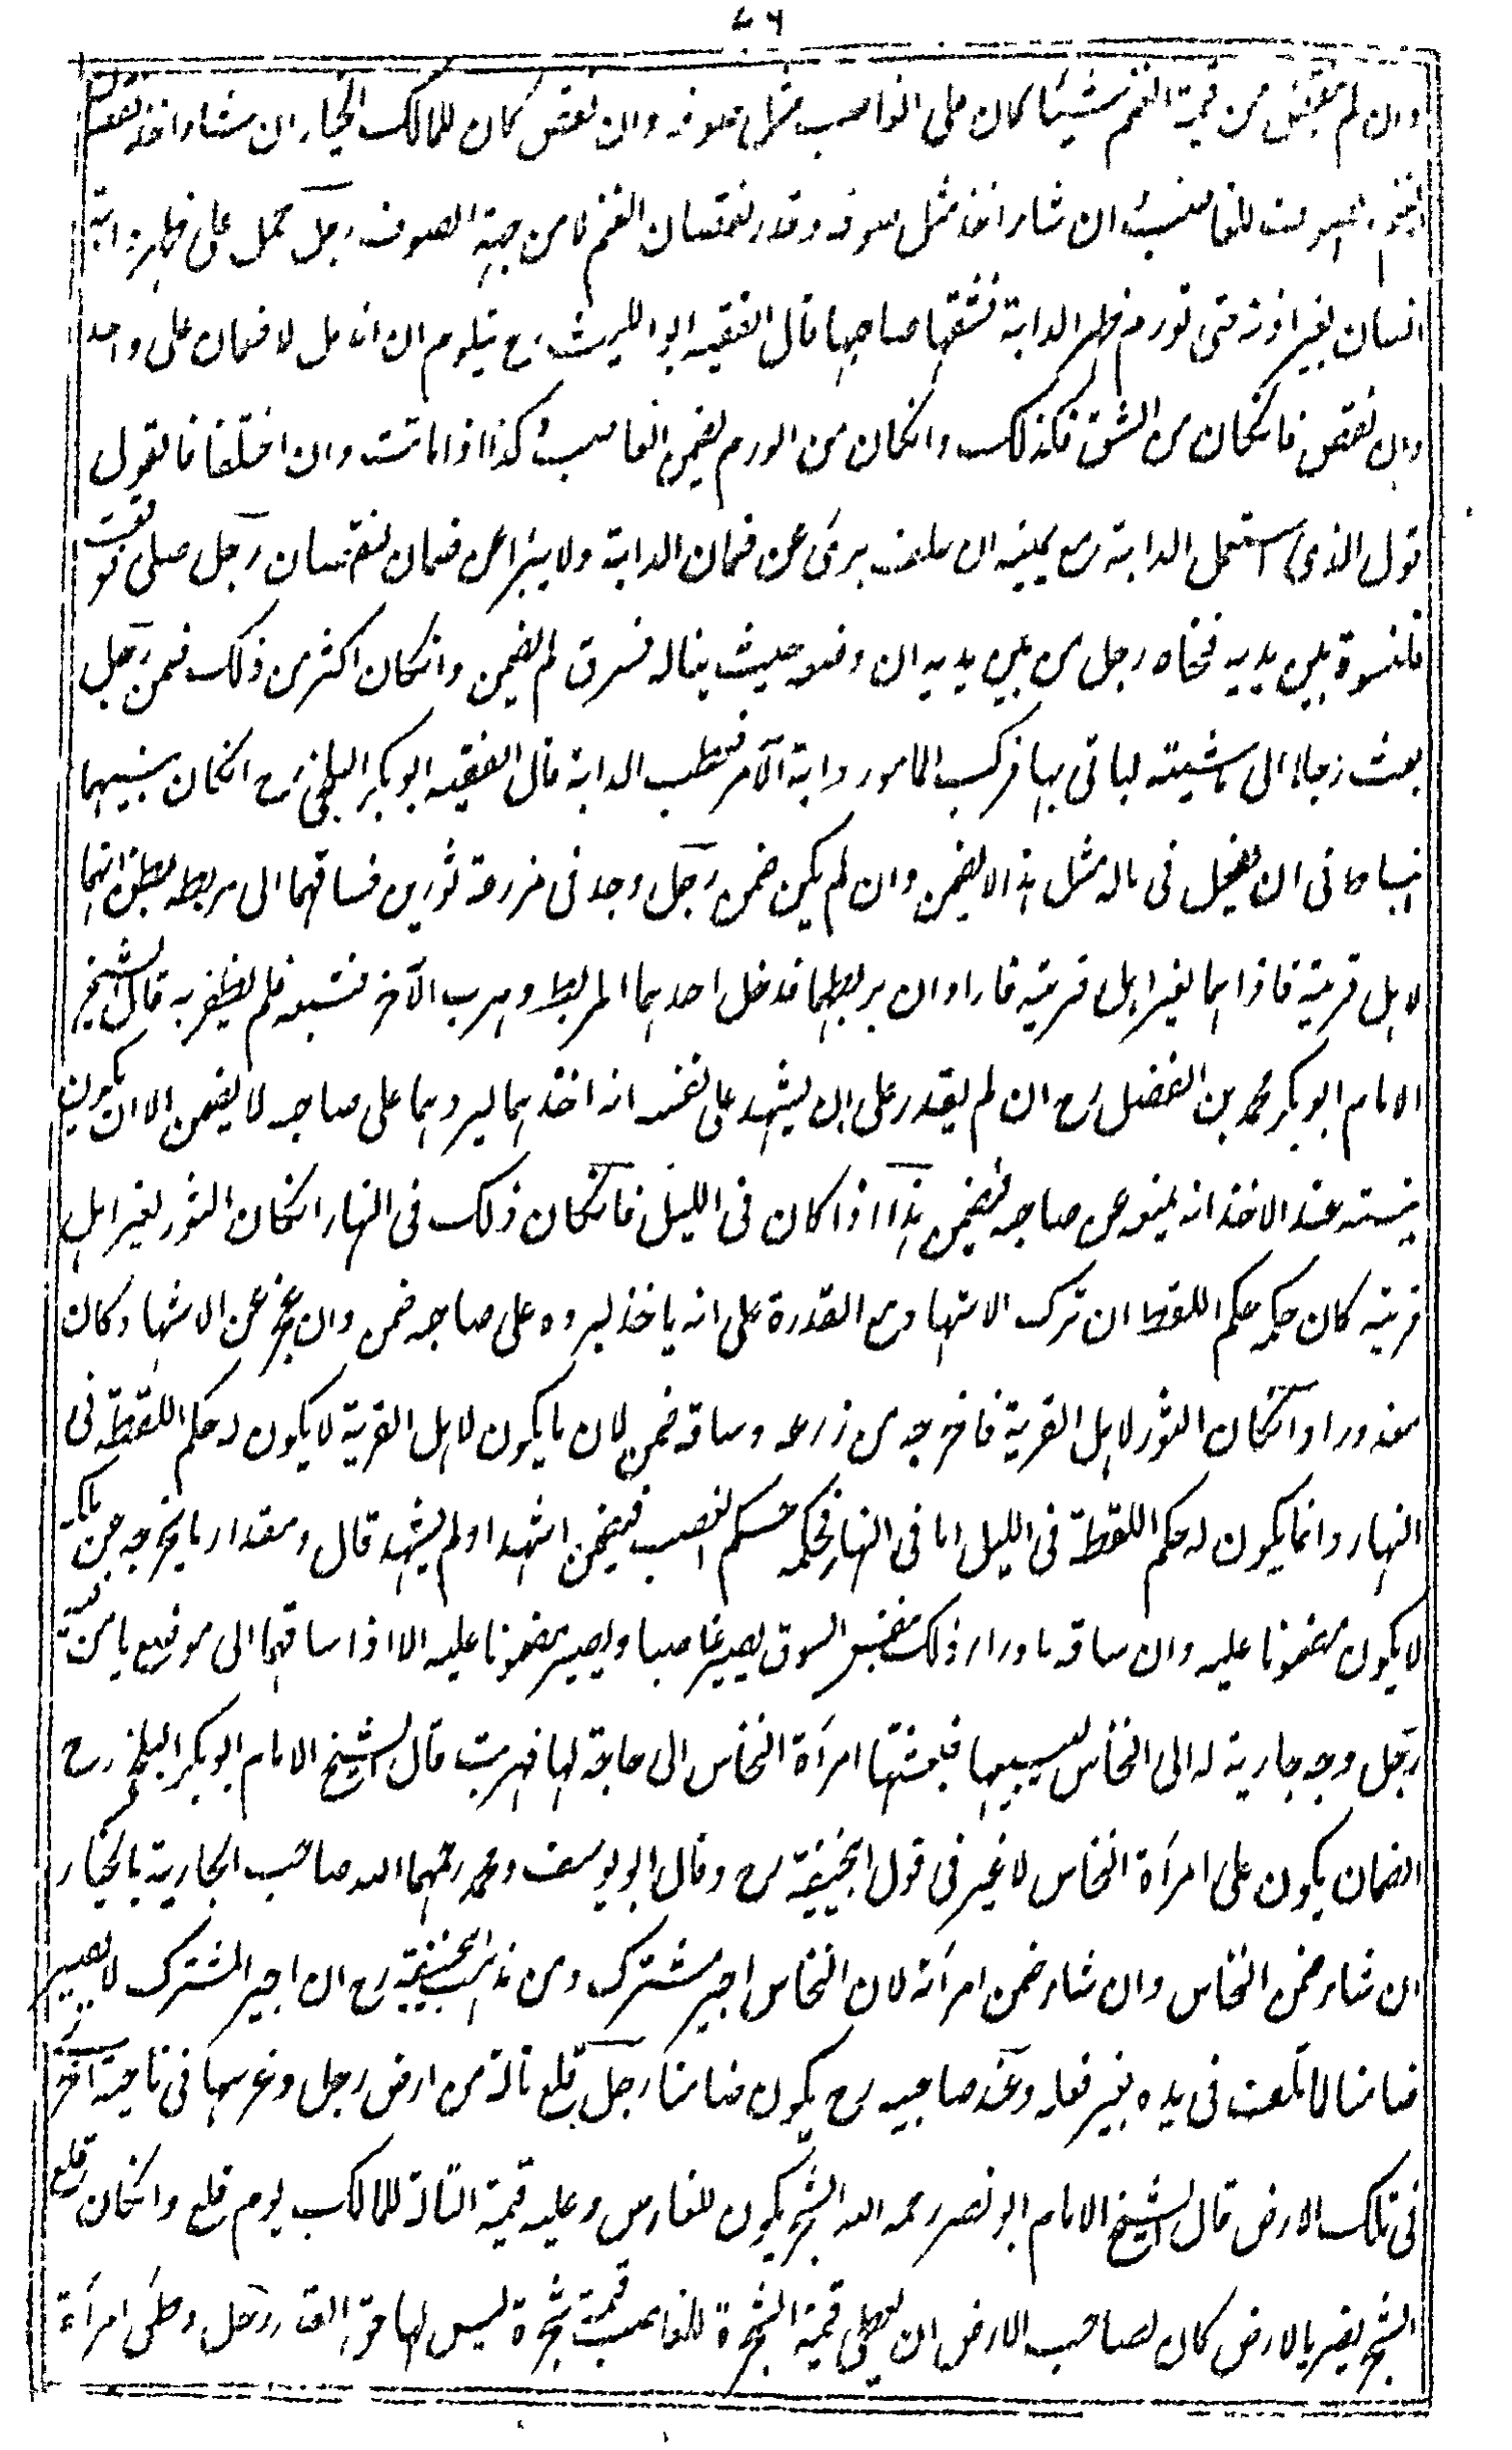 ٧٦
وان لم ينقص من قيمة الغنم شيئا كان على الغاصب مثل صوفه وان نقص كان للمالك الخيار ان شاء اخذ نقصان
الغنم والصوف للغاصب وان شاء اخذ مثل صوفه وقدر نقصان الغنم لا من جهة الصوف رجل حمل على ظهر دابة
انسان بغير اذنه حتى تورم ظهر الدابة فشقها صاحبها قال الفقيه ابو الليث رح يتلوم ان اندمل لا ضمان على واحد
وان نقص فانكان من الشق فكذلك وانكان من الورم يضمن الغاصب وكذا اذا ماتت وان اختلفا فالقول
قول الذى استعمل الدابة مع يمينه ان حلف برئ عن ضمان الدابة ولا يبرا عن ضمان النقصان رجل صلى فوقعت
قلنسوة بين يديه فنحاه رجل من بين يديه ان وضعه حيث يناله فسرق لم يضمن وانكان اكثر من ذلك ضمن رجل
بعث رجلا الى ماشيته لياتى بها فركب المامور دابة الآمر فعطب الدابة قال الفقيه ابو بكر البلخى رح انكان بينهما
انبساط فى ان يفعل فى ماله مثل هذا لا يضمن وان لم يكن ضمن رجل وجد فى مزرعة ثورين فساقهما الى مربطه يظن انهما
لاهل قريته فاذا هما لغير اهل قريته فاراد ان يربطهما فدخل احدهما المربط وهرب الآخر فتبعه فلم يظفر به قال الشيخ
الامام ابو بكر محمد بن الفضل رح ان لم يقدر على ان يشهد على نفسه انه اخذهما ليردهما على صاحبه لا يضمن الا ان يكون
نيته عند الاخذ انه يمنعه عن صاحبه فيضمن هذا اذا كان فى الليل فانكان ذلك فى النهار انكان الثور لغير اهل
قريته كان حكمه حكم اللقطة ان ترك الاشهاد مع القدرة على انه ياخذ ليرده على صاحبه ضمن وان عجز عن الاشهاد كان
معذورا وانكان الثور لاهل القرية فاخرجه من زرعه وساقه ضمن لان ما يكون لاهل القرية لا يكون له حكم اللقطة فى
النهار وانما يكون له حكم اللقطة فى الليل اما فى النهار فحكمه حكم الغصب فيضمن اشهد او لم يشهد قال ومقدار ما يخرجه عن ملكه
لا يكون مضمونا عليه وان ساقه ما وراء ذلك فبنفس السوق يصير غاصبا ويصير مضمونا عليه الا اذا ساقهما الى موضع يامن فيه
رجل وجه جارية له الى النخاس ليبيعها فبعثتها امرأة النخاس الى حاجة لها فهربت قال الشيخ الامام ابو بكر البلخى رح
الضمان يكون على امرأة النخاس لا غير فى قول ابيحنيفة رح وقال ابو يوسف ومحمد رحمهما الله صاحب الجارية بالخيار
ان شاء ضمن النخاس وان شاء ضمن امرأته لان النخاس اجير مشترك ومن مذهب ابيحنيفة رح ان اجير المشترك لا يصير
ضامنا لما تلف فى يده بغير فعله وعند صاحبيه رح يكون ضامنا رجل قلع تالة من ارض رجل وغرسها فى ناحية اخرى
فى تلك الارض قال الشيخ الامام ابو نصر رحمه الله الشجر يكون للغارس وعليه قيمة التالة للمالك يوم قلع وانكان قلع
الشجر يضر بالارض كان لصاحب الارض ان يعطى قيمة الشجرة للغاصب قيمة شجرة ليس لها حق القرار رجل وطئ امرأة